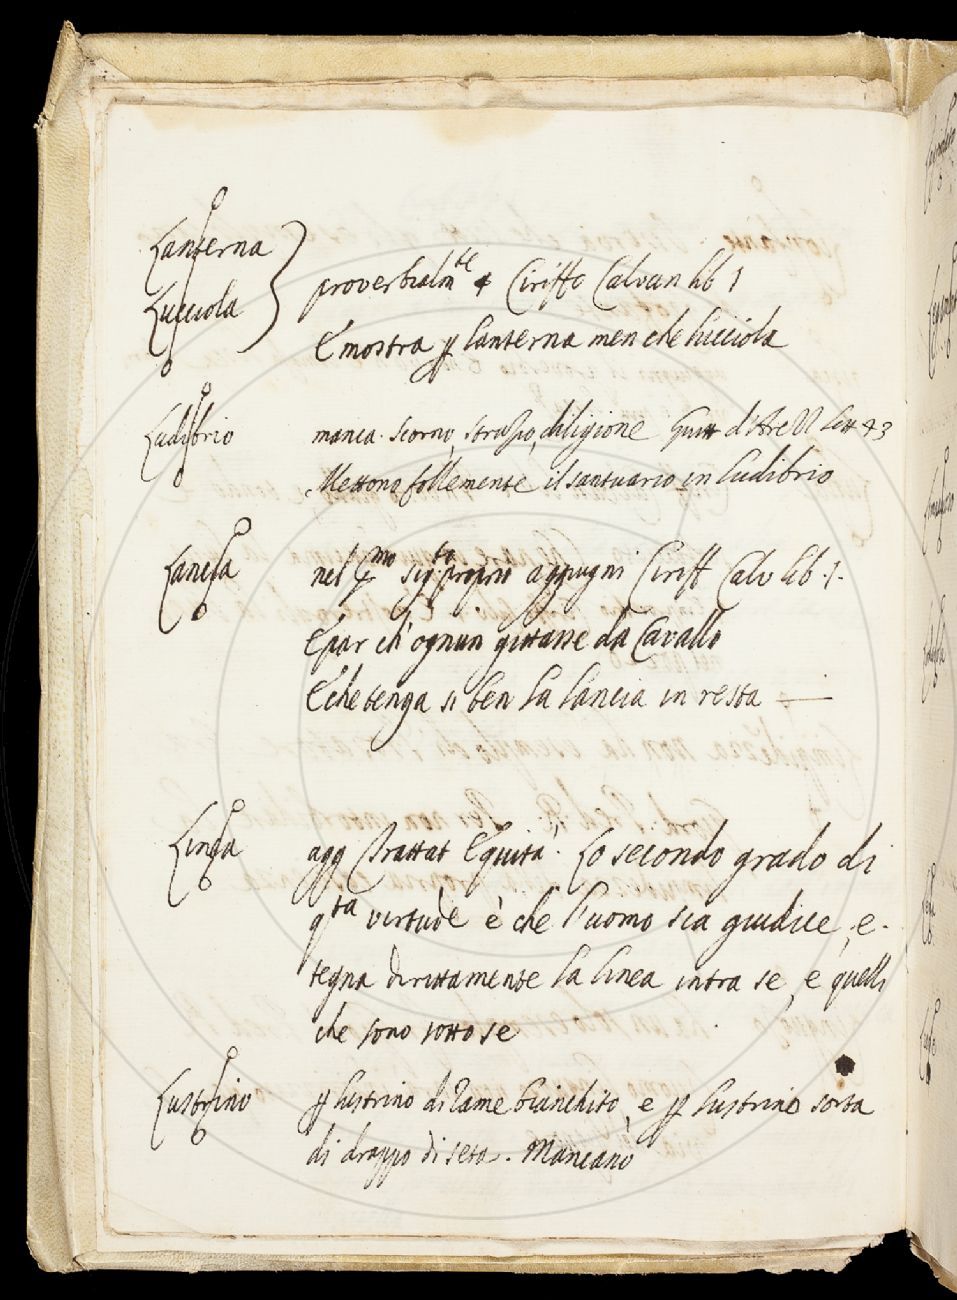 Lanterna
Lucciola
proverbialm.te Ciriffo Calvan lib 1
E mostra p lanterna men che lucciola
Ludibrio
manca. scorno, strazio, diligione Guitt d'Are lett 43
Mettono follemente il santuario in ludibrio
Lancia
nel p.mo sig.to proprio aggiugni Ciriff Calv lib. 1.
E par ch'ognun gittasse da Cavallo
E che tenga si ben la lancia in resta
Linea
agg Trattat Equità. Lo secondo grado di
q.ta virtude è che l'uomo sia giudice, e
tegna dirittamente la linea intra se, e quelli
che sono sotto se
Lustrino
p lustrino di rame bianchito, e p lustrino sorta
di drappo di seta. Mancano